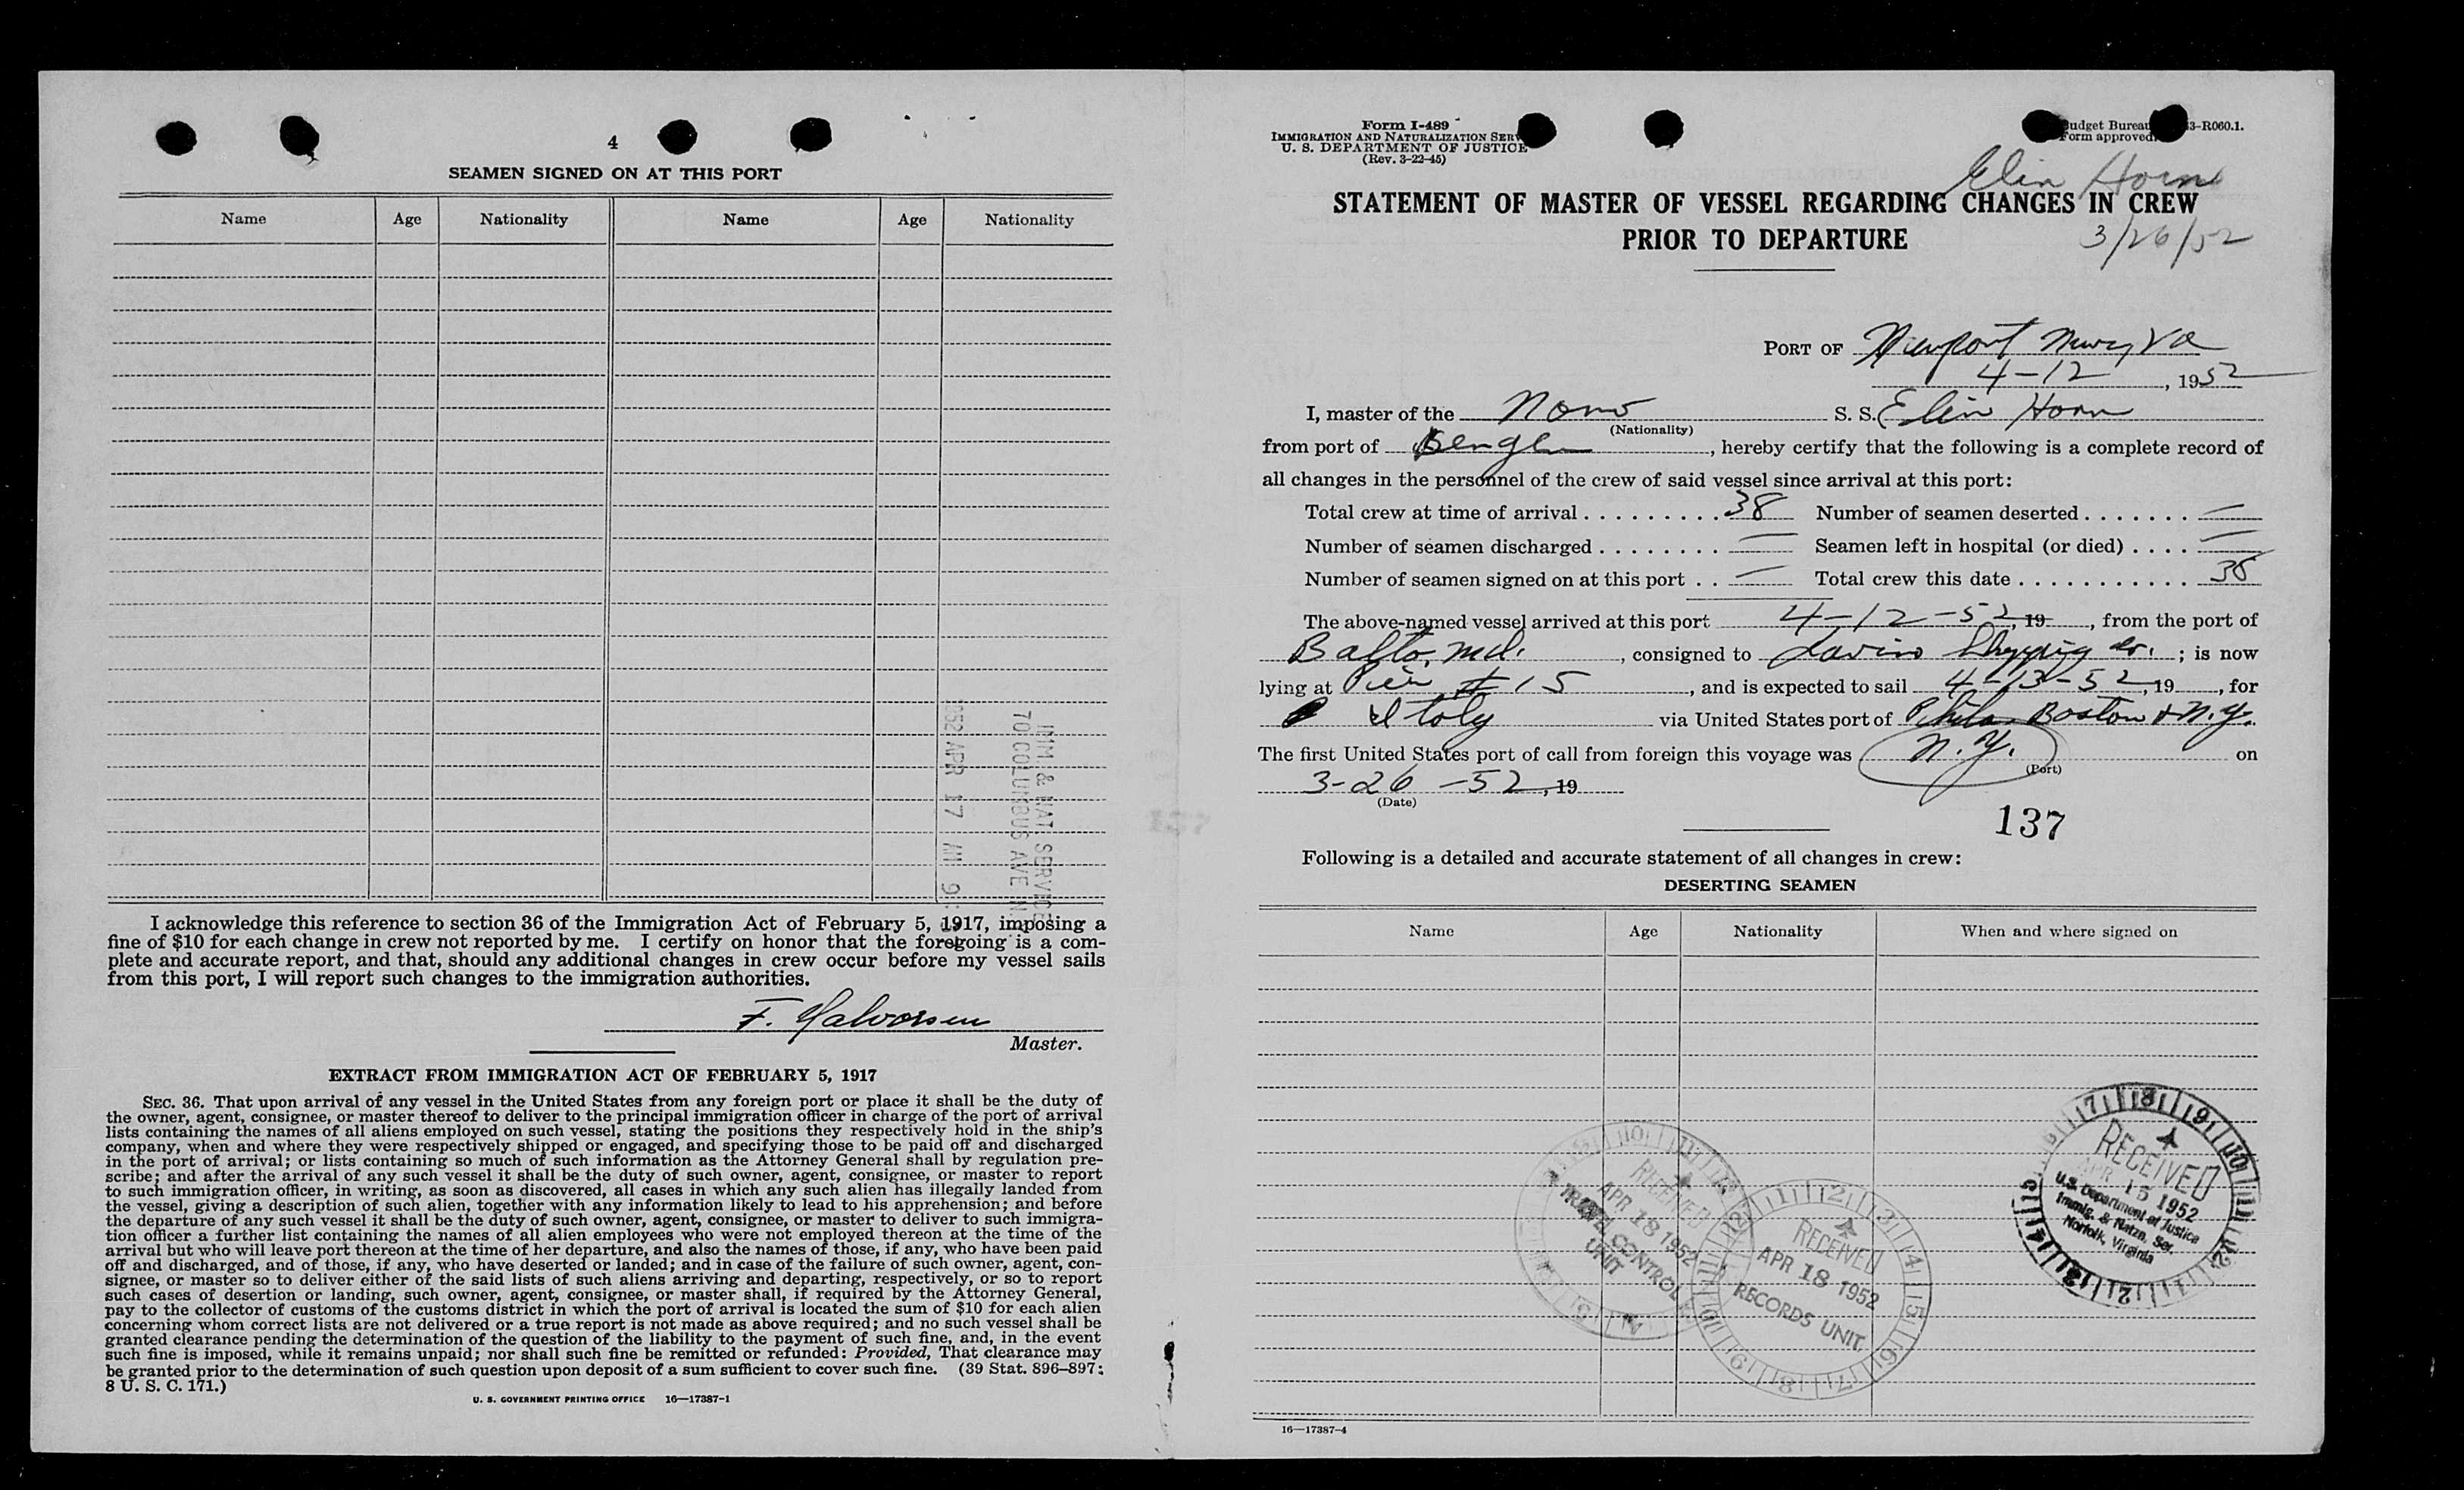 4
SEAMEN SIGNED ON AT THIS PORT
Name Age Nationality Name Age Nationality
IMM. & NAT. SERVICE
70 COLUMBUS AVE N.
1952 APR 17 AM 9:
I acknowledge this reference to section 36 of the Immigration Act of February 5, 1917, imposing a
fine of $10 for each change in crew not reported by me. I certify on honor that the foregoing is a com-
plete and accurate report, and that, should any additional changes in crew occur before my vessel sails
from this port, I will report such changes to the immigration authorities.
F. Halvorsen
Master.
EXTRACT FROM IMMIGRATION ACT OF FEBRUARY 5, 1917
SEC. 36. That upon arrival of any vessel in the United States from any foreign port or place it shall be the duty of
the owner, agent, consignee, or master thereof to deliver to the principal immigration officer in charge of the port of arrival
lists containing the names of all aliens employed on such vessel, stating the positions they respectively hold in the ship's
company, when and where they were respectively shipped or engaged, and specifying those to be paid off and discharged
in the port of arrival; or lists containing so much of such information as the Attorney General shall by regulation pre-
scribe; and after the arrival of any such vessel it shall be the duty of such owner, agent, consignee, or master to report
to such immigration officer, in writing, as soon as discovered, all cases in which any such alien has illegally landed from
the vessel, giving a description of such alien, together with any information likely to lead to his apprehension; and before
the departure of any such vessel it shall be the duty of such owner, agent, consignee, or master to deliver to such immigra-
tion officer a further list containing the names of all alien employees who were not employed thereon at the time of the
arrival but who will leave port thereon at the time of her departure, and also the names of those, if any, who have been paid
off and discharged, and of those, if any, who have deserted or landed; and in case of the failure of such owner, agent, con-
signee, or master so to deliver either of the said lists of such aliens arriving and departing, respectively, or so to report
such cases of desertion or landing, such owner, agent, consignee, or master shall, if required by the Attorney General,
pay to the collector of customs of the customs district in which the port of arrival is located the sum of $10 for each alien
concerning whom correct lists are not delivered or a true report is not made as above required; and no such vessel shall be
granted clearance pending the determination of the question of the liability to the payment of such fine, and, in the event
such fine is imposed, while it remains unpaid; nor shall such fine be remitted or refunded: Provided, That clearance may
be granted prior to the determination of such question upon deposit of a sum sufficient to cover such fine. (39 Stat. 896–897;
8 U. S. C. 171.)
U. S. GOVERNMENT PRINTING OFFICE 16—17387-1
Form I-489
IMMIGRATION AND NATURALIZATION SERV
U. S. DEPARTMENT OF JUSTICE
(Rev. 3-22-45)
udget Bureau 3-R060.1.
Form approved.
Elin Horn
STATEMENT OF MASTER OF VESSEL REGARDING CHANGES IN CREW
PRIOR TO DEPARTURE
3/26/52
PORT OF Newport News, Va
4-12, 1952
I, master of the Norw S. S. Elin Horn
(Nationality)
from port of Bergen, hereby certify that the following is a complete record of
all changes in the personnel of the crew of said vessel since arrival at this port:
Total crew at time of arrival . . . . . . . . . 38 Number of seamen deserted . . . . . . . —
Number of seamen discharged . . . . . . . . — Seamen left in hospital (or died) . . . . —
Number of seamen signed on at this port . . — Total crew this date . . . . . . . . . . . . 38
The above-named vessel arrived at this port 4-12-52, 19 , from the port of
Balto, Md. , consigned to Lavino Shipping Co. ; is now
lying at Pier #15 , and is expected to sail 4-13-52, 19 , for
Italy via United States port of Phila Boston & N.Y.
The first United States port of call from foreign this voyage was N.Y. on
(Port)
3-26-52, 19
(Date)
137
Following is a detailed and accurate statement of all changes in crew:
DESERTING SEAMEN
Name Age Nationality When and where signed on
RECEIVED
APR 15 1952
U.S. Department of Justice
Immig. & Natzn. Ser.
Norfolk, Virginia
RECEIVED
APR 18 1952
TRAVEL CONTROL
UNIT
RECEIVED
APR 18 1952
RECORDS UNIT
16—17387-4